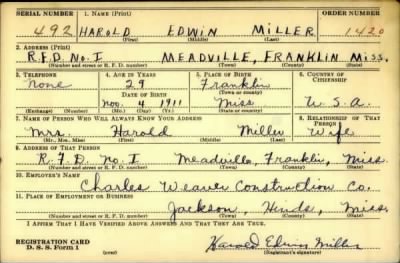 SERIAL NUMBER 1. NAME (Print) ORDER NUMBER
492 HAROLD EDWIN MILLER 1420
(First) (Middle) (Last)
2. ADDRESS (Print)
R.F.D. No. I MEADVILLE, FRANKLIN MISS.
(Number and street or R. F. D. number) (Town) (County) (State)
3. TELEPHONE 4. AGE IN YEARS 5. PLACE OF BIRTH 6. COUNTRY OF CITIZENSHIP
None 29 Franklin
DATE OF BIRTH (Town or county)
Nov. 4 1911 Miss U.S.A.
(Exchange) (Number) (Mo.) (Day) (Yr.) (State or country)
7. NAME OF PERSON WHO WILL ALWAYS KNOW YOUR ADDRESS 8. RELATIONSHIP OF THAT PERSON
Mrs. Harold Miller Wife
(Mr., Mrs., Miss) (First) (Middle) (Last)
9. ADDRESS OF THAT PERSON
R.F.D. No. I Meadville, Franklin, Miss.
(Number and street or R. F. D. number) (Town) (County) (State)
10. EMPLOYER'S NAME
Charles Weaver Construction Co.
11. PLACE OF EMPLOYMENT OR BUSINESS
Jackson, Hinds, Miss.
(Number and street or R. F. D. number) (Town) (County) (State)
I AFFIRM THAT I HAVE VERIFIED ABOVE ANSWERS AND THAT THEY ARE TRUE.
REGISTRATION CARD
D. S. S. Form 1 (over) Harold Edwin Miller
(Registrant's signature)